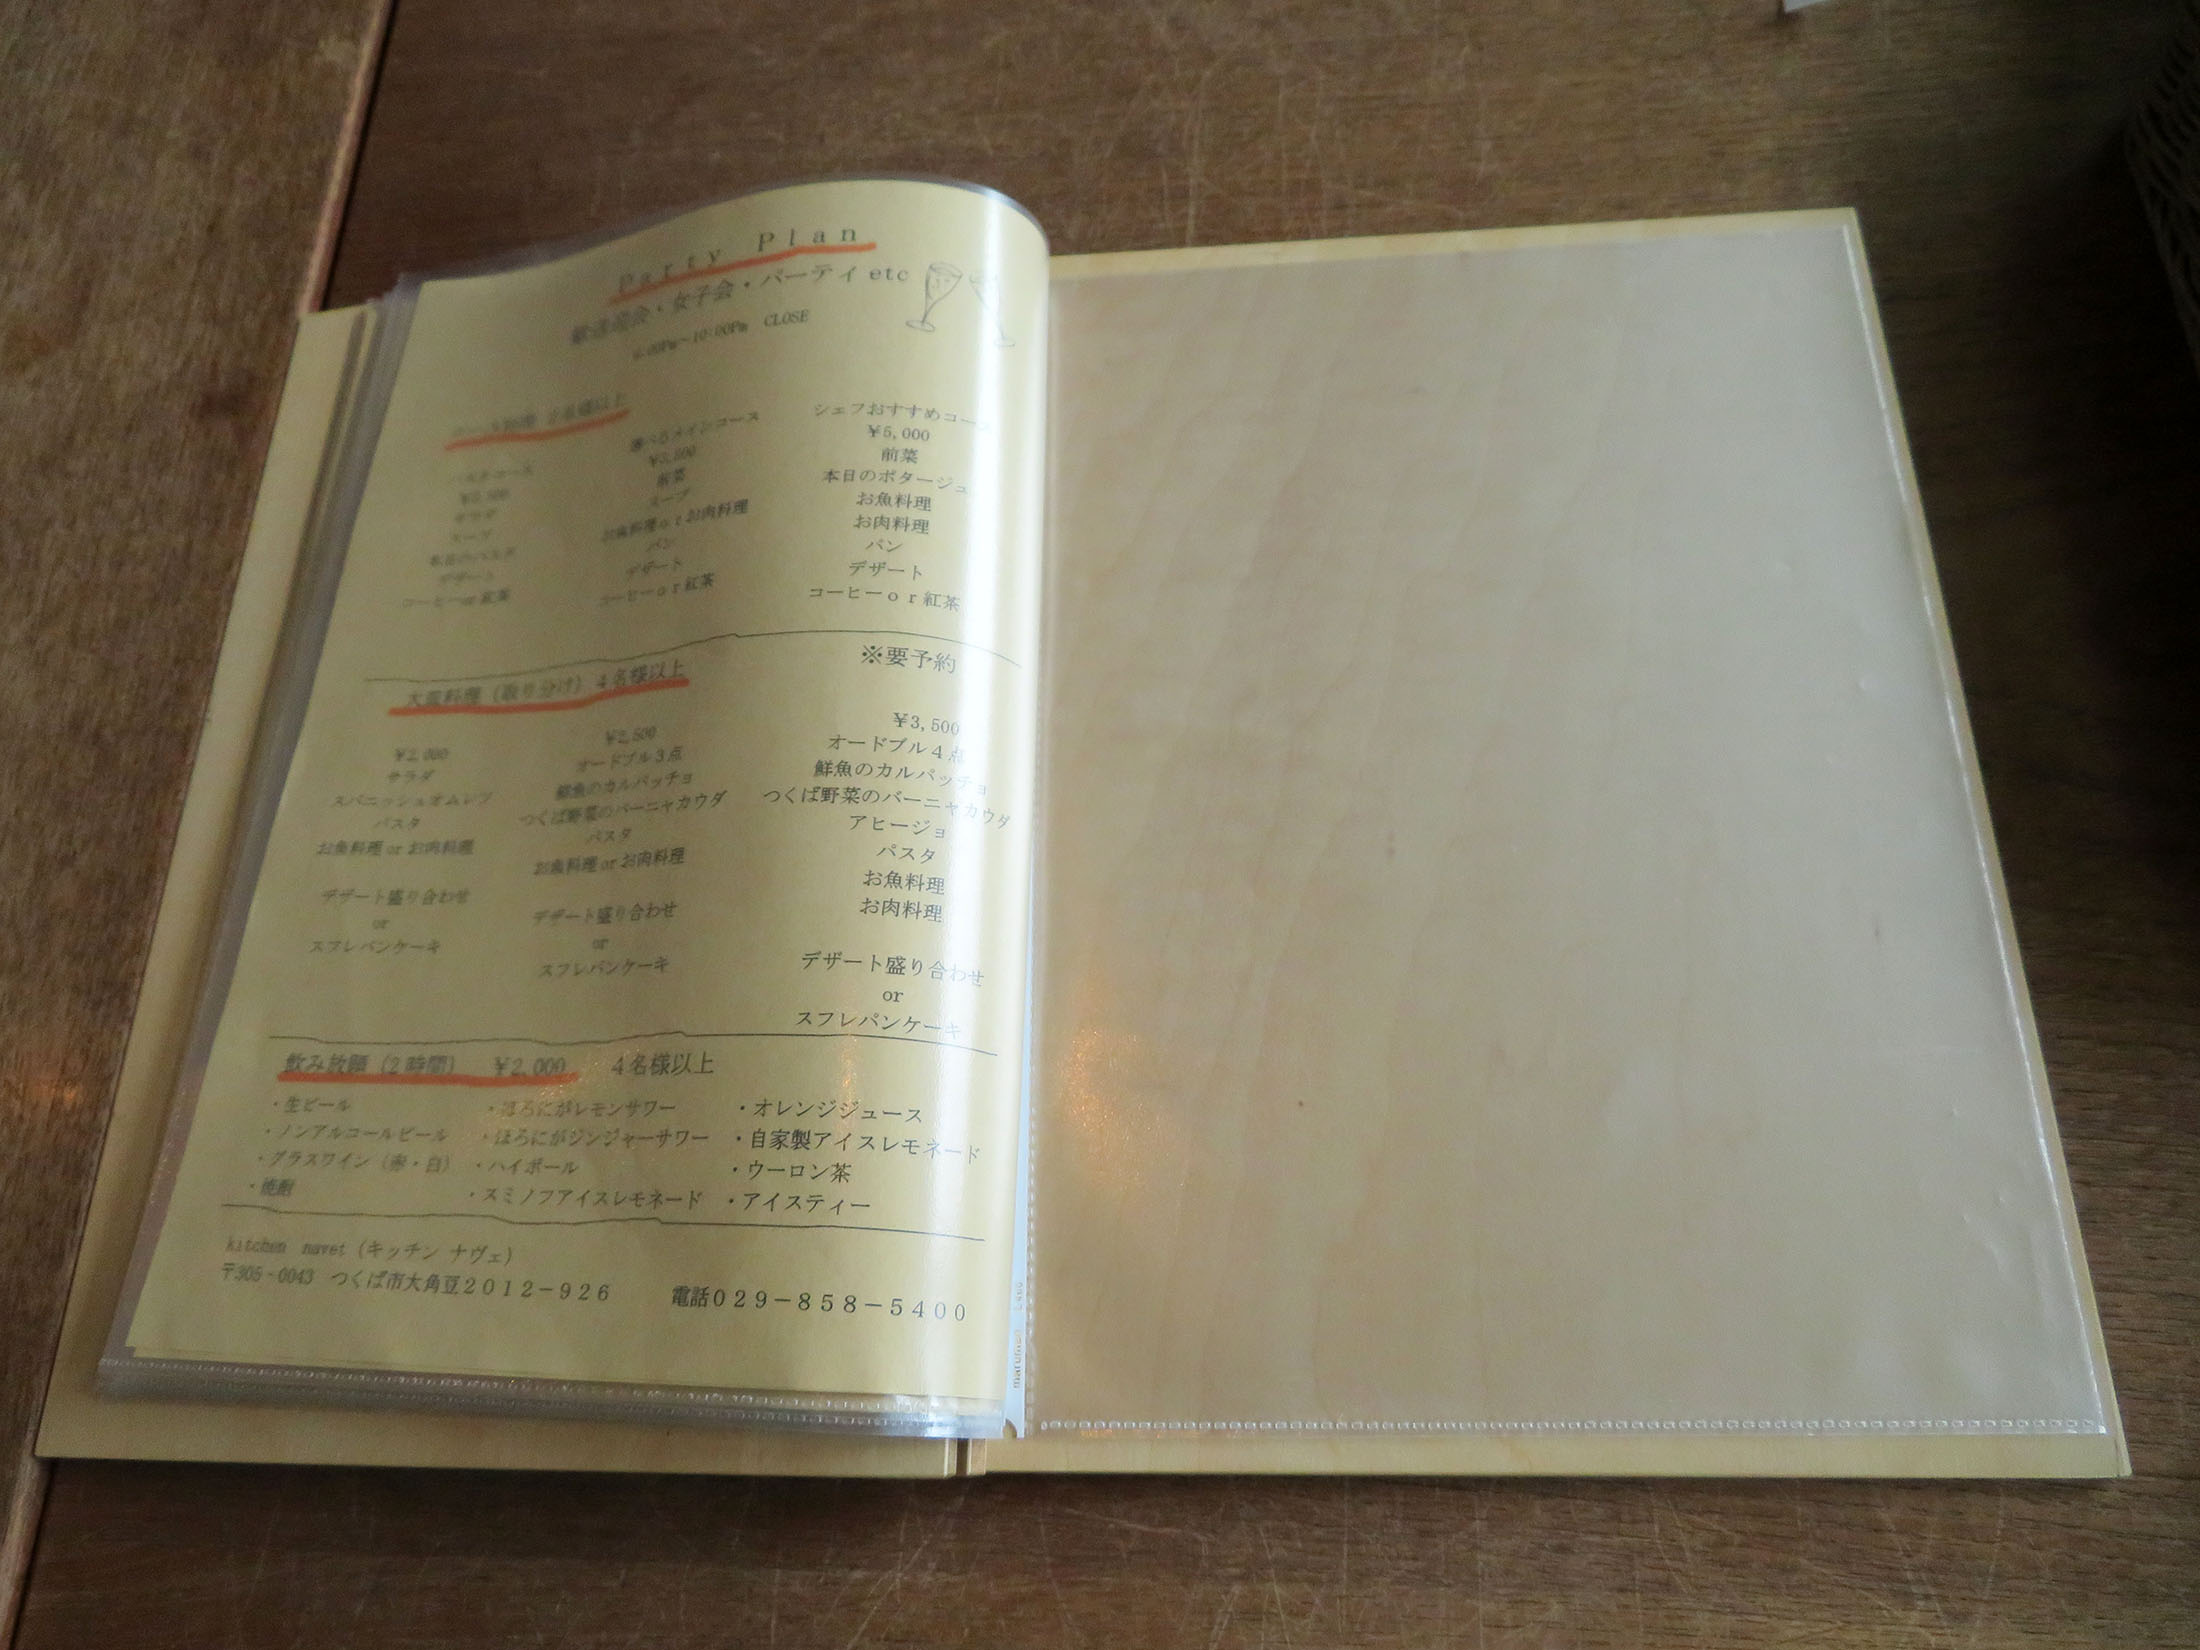 Party Plan
歓送迎会・女子会・パーティetc
6:00Pm～10:00Pm CLOSE
コース料理 2名様以上
パスタコース
サラダ
スープ
本日のパスタ
デザート
コーヒーor紅茶
選べるメインコース
前菜
スープ
お魚料理orお肉料理
パン
デザート
コーヒーor紅茶
シェフおすすめコース
¥5,000
前菜
本日のポタージュ
お魚料理
お肉料理
パン
デザート
コーヒーor紅茶
大皿料理（取り分け）4名様以上
※要予約
¥2,000
サラダ
スパニッシュオムレツ
パスタ
お魚料理orお肉料理
デザート盛り合わせ
or
スフレパンケーキ
¥2,500
オードブル3点
鮮魚のカルパッチョ
つくば野菜のバーニャカウダ
パスタ
お魚料理orお肉料理
デザート盛り合わせ
or
スフレパンケーキ
¥3,500
オードブル4点
鮮魚のカルパッチョ
つくば野菜のバーニャカウダ
アヒージョ
パスタ
お魚料理
お肉料理
デザート盛り合わせ
or
スフレパンケーキ
飲み放題（2時間） ¥2,000 4名様以上
・生ビール
・ノンアルコールビール
・グラスワイン（赤・白）
・焼酎
・ほろにがレモンサワー
・ほろにがジンジャーサワー
・ハイボール
・スミノフアイスレモネード
・オレンジジュース
・自家製アイスレモネード
・ウーロン茶
・アイスティー
kitchen navet（キッチン ナヴェ）
〒305-0043 つくば市大角豆2012－926 電話029－858－5400